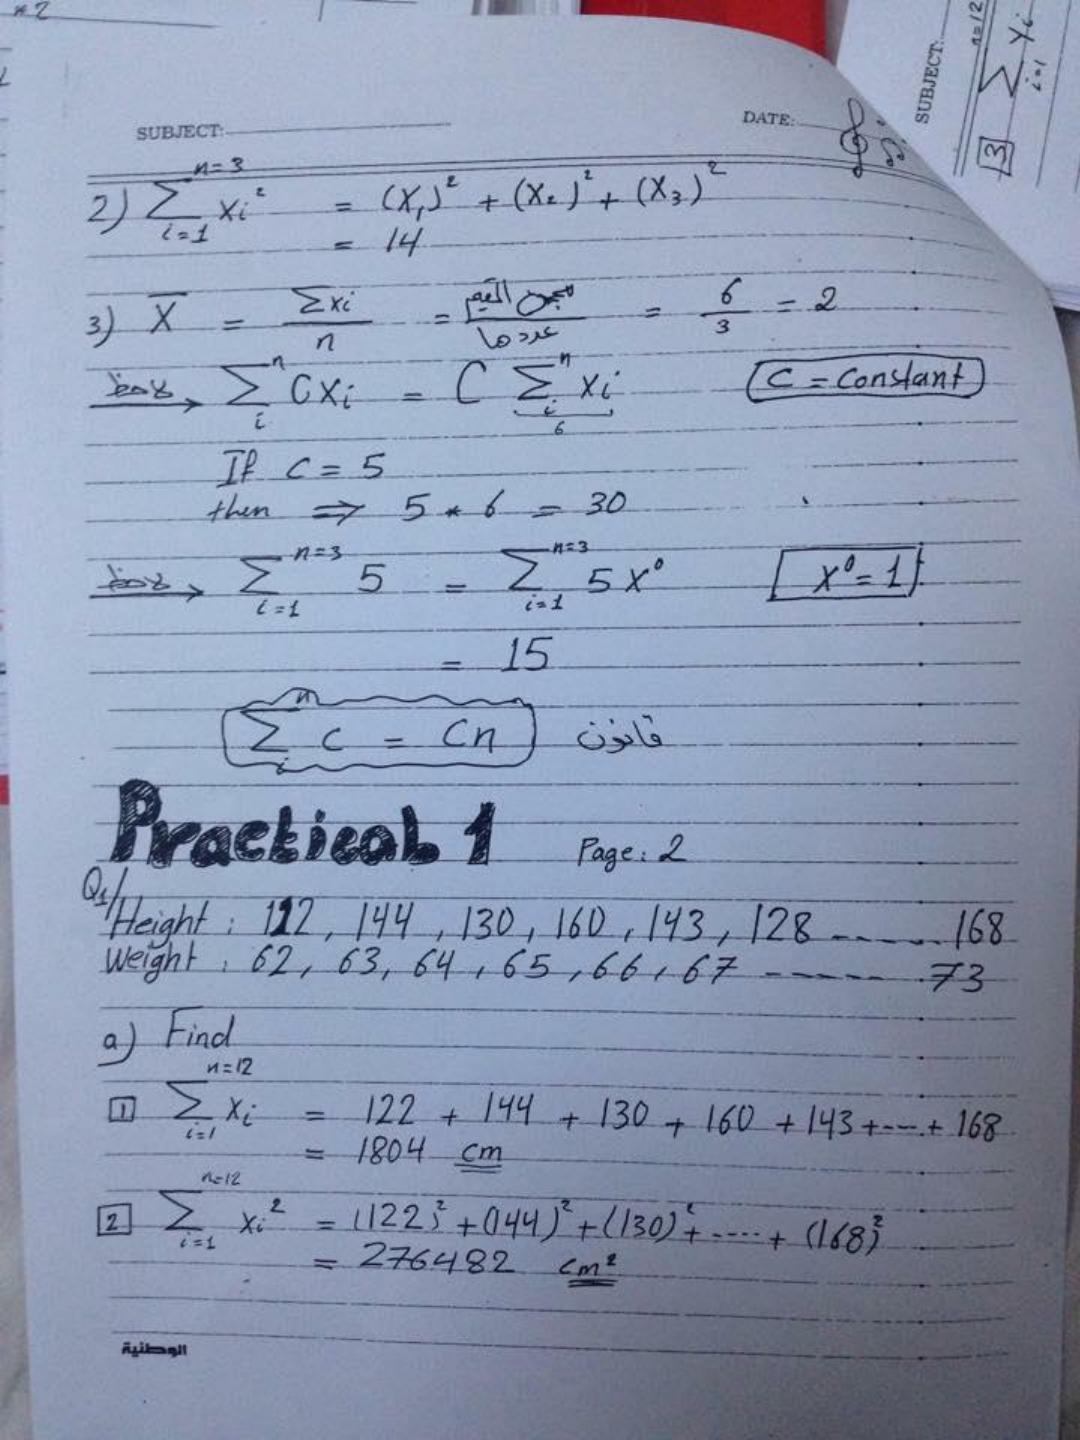 SUBJECT: DATE:
2) \sum_{i=1}^{n=3} xi² = (X₁)² + (X₂)² + (X₃)²
= 14
3) X̄ = Σxi / n = مجموع القيم / عددها = 6/3 = 2
لاحظ → \sum_{i}^{n} Cxi = C \sum_{i}^{n} xi C = Constant
6
If C = 5
then ⇒ 5 * 6 = 30
لاحظ → \sum_{i=1}^{n=3} 5 = \sum_{i=1}^{n=3} 5 X⁰ X⁰ = 1
= 15
\sum_{i}^{n} C = Cn قانون
Practical 1 Page: 2
Q1/
Height : 122, 144, 130, 160, 143, 128 ------ 168
Weight : 62, 63, 64, 65, 66, 67 ------ 73
a) Find
1 \sum_{i=1}^{n=12} xi = 122 + 144 + 130 + 160 + 143 + --- + 168
= 1804 cm
2 \sum_{i=1}^{n=12} xi² = (122)² + (144)² + (130)² + ---- + (168)²
= 276482 cm²
الوطنية
SUBJECT:
3 \sum_{i=1}^{n=12} Yi